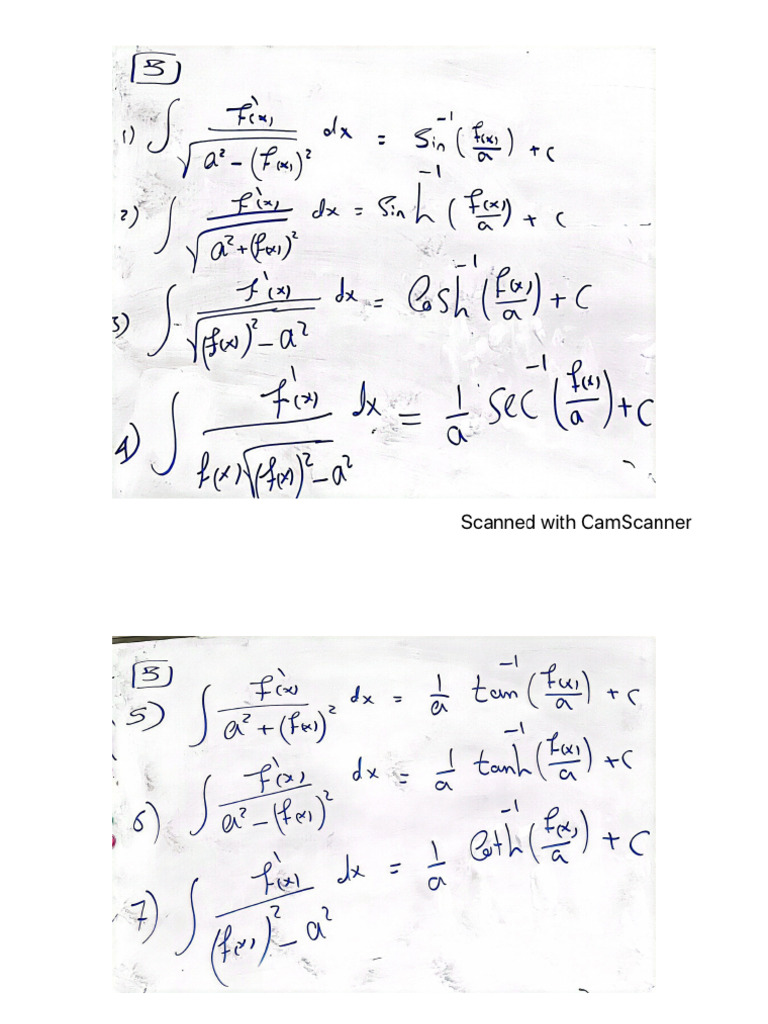 B
1) ∫ f'(x) / √(a² - (f(x))²) dx = sin⁻¹ (f(x)/a) + c
2) ∫ f'(x) / √(a² + (f(x))²) dx = sinh⁻¹ (f(x)/a) + c
3) ∫ f'(x) / √((f(x))² - a²) dx = Cosh⁻¹ (f(x)/a) + C
4) ∫ f'(x) / f(x)√((f(x))² - a²) dx = 1/a sec⁻¹ (f(x)/a) + C
Scanned with CamScanner
B
5) ∫ f'(x) / a² + (f(x))² dx = 1/a tan⁻¹ (f(x)/a) + c
6) ∫ f'(x) / a² - (f(x))² dx = 1/a tanh⁻¹ (f(x)/a) + C
7) ∫ f'(x) / (f(x))² - a² dx = 1/a Coth⁻¹ (f(x)/a) + C